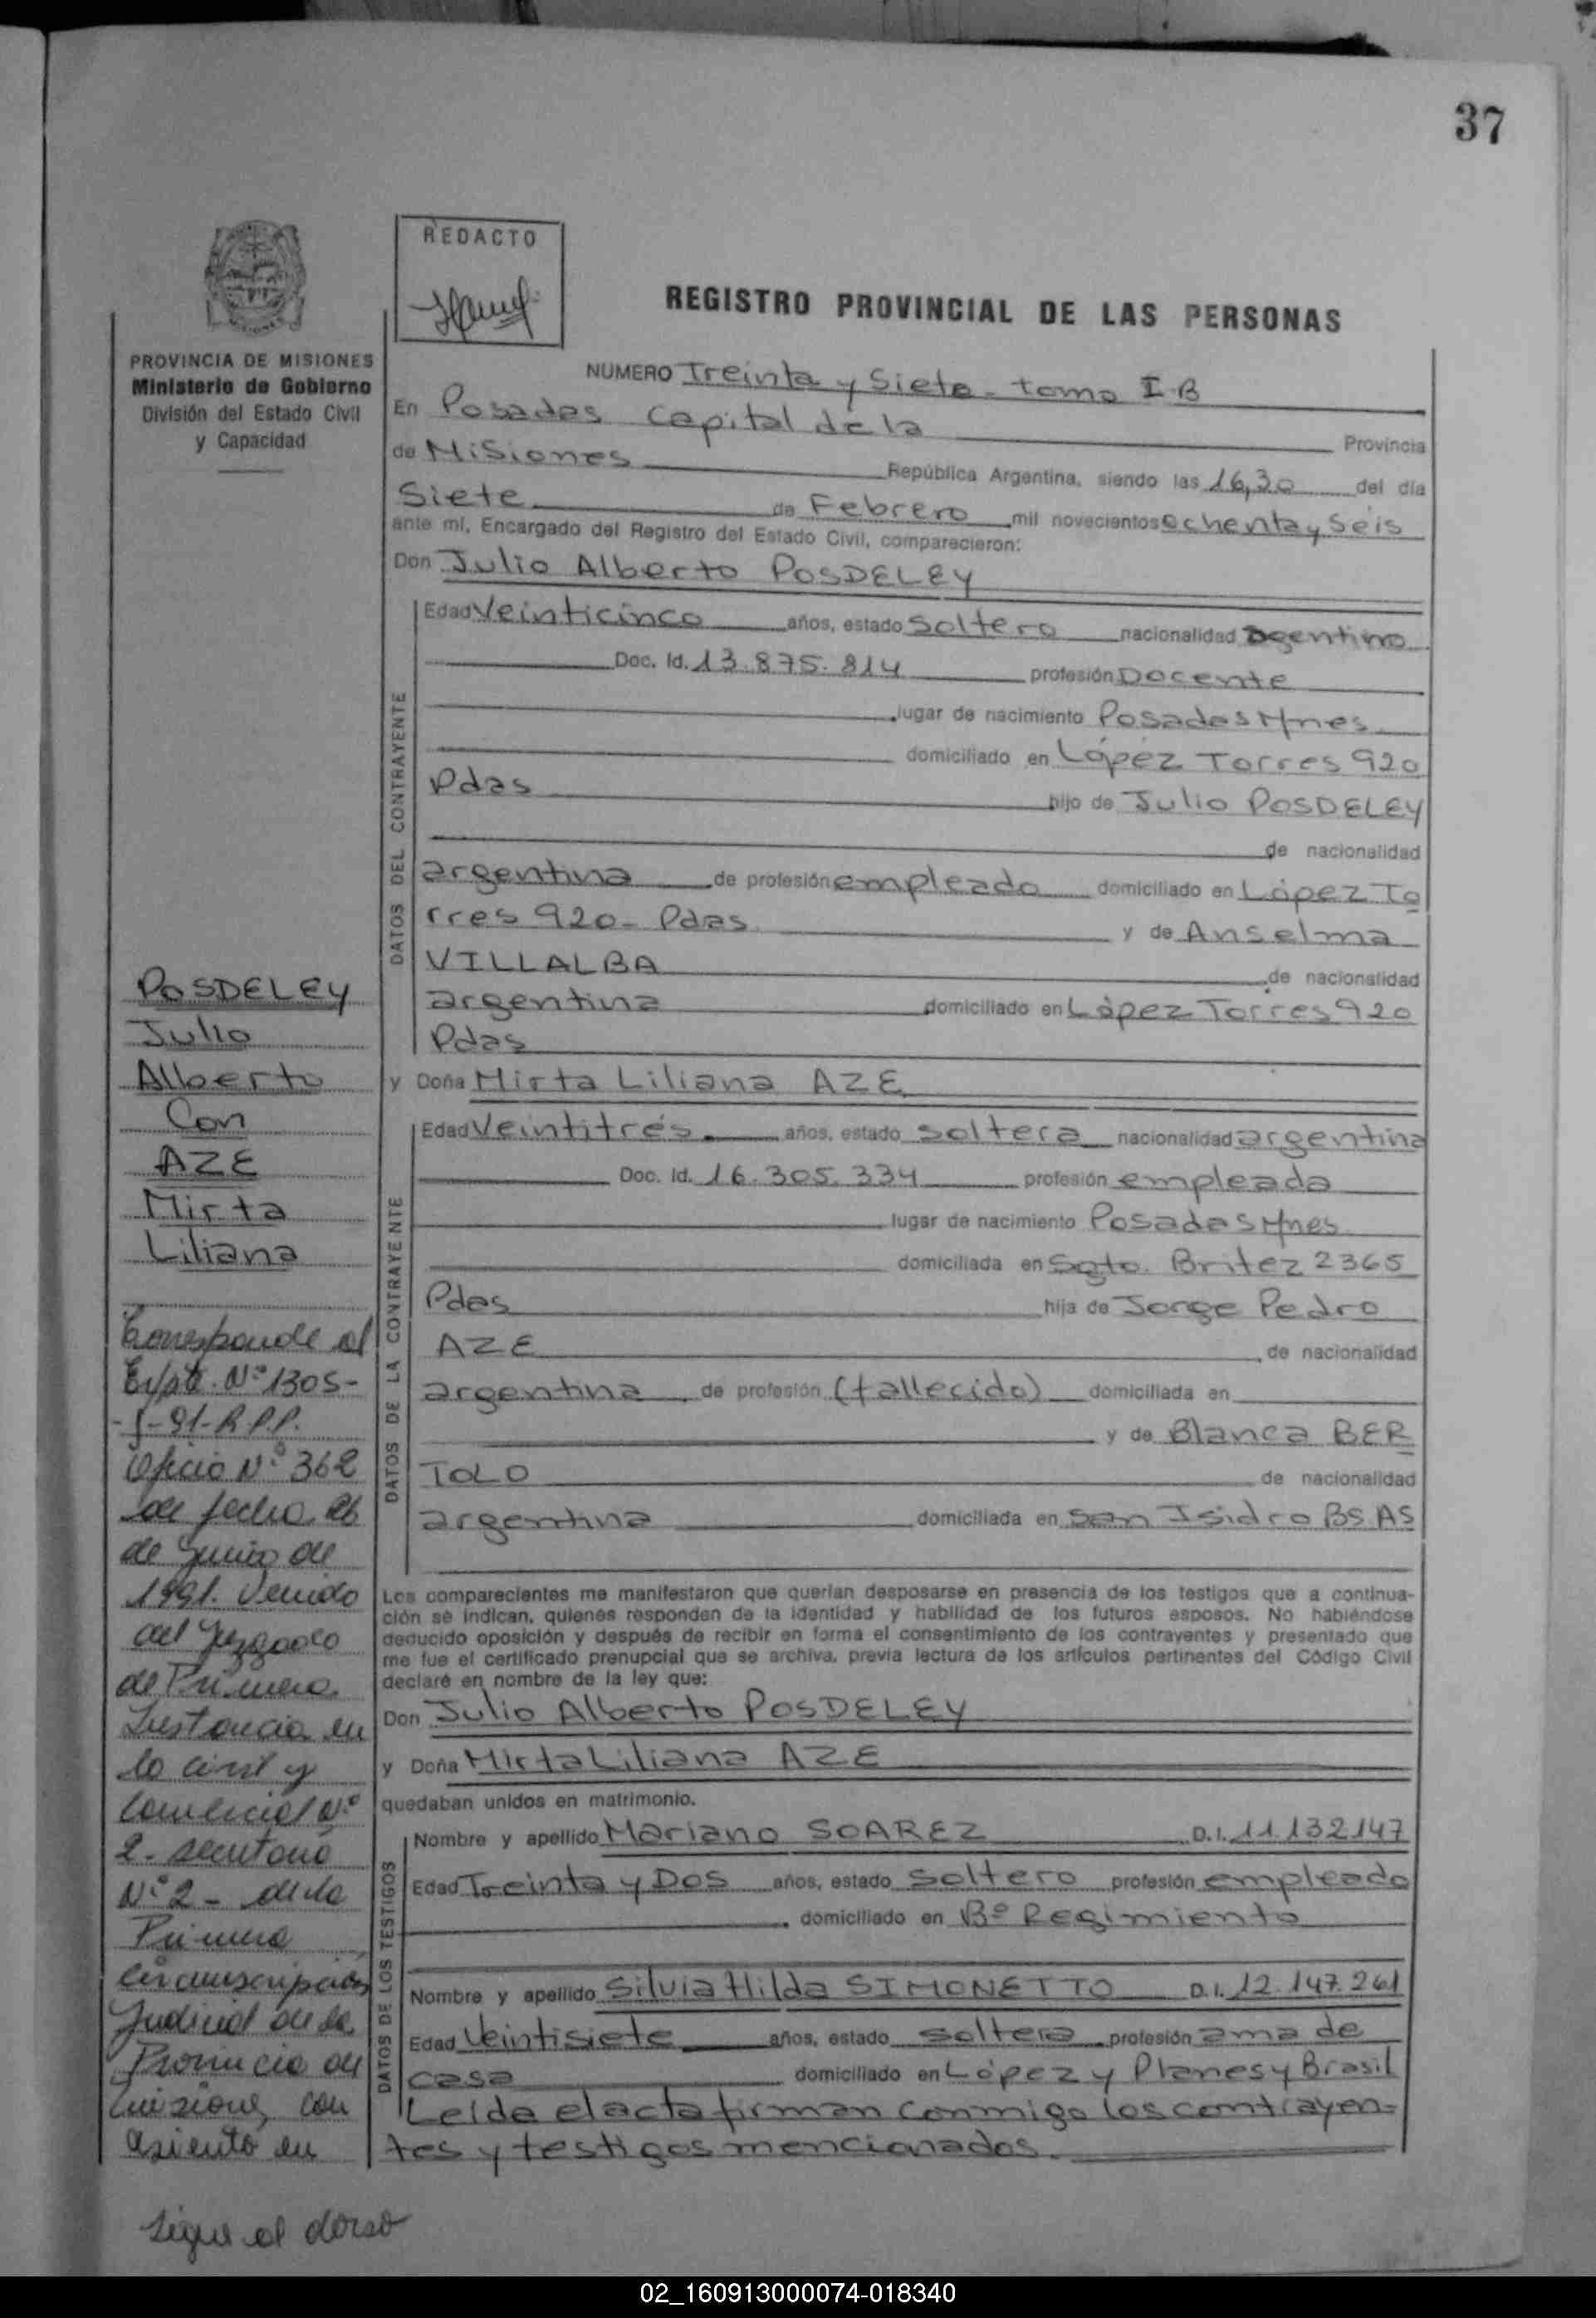 37
REDACTO
REGISTRO PROVINCIAL DE LAS PERSONAS
PROVINCIA DE MISIONES
Ministerio de Gobierno
División del Estado Civil
y Capacidad
NUMERO Treinta y Siete - tomo I-B
En Posadas Capital de la Provincia
de Misiones República Argentina, siendo las 16,30 del día
Siete de Febrero mil novecientos ochenta y Seis
ante mí, Encargado del Registro del Estado Civil, comparecieron:
Don Julio Alberto POSDELEY
DATOS DEL CONTRAYENTE
Edad Veinticinco años, estado Soltero nacionalidad
Doc. Id. 13.875.814 profesión Docente
lugar de nacimiento Posadas Mnes
domiciliado en López Torres 920
Pdas hijo de Julio POSDELEY
de nacionalidad
argentina de profesión empleado domiciliado en López To
rres 920 - Pdas y de Anselma
VILLALBA de nacionalidad
argentina domiciliado en López Torres 920
Pdas
y Doña Mirta Liliana AZE
DATOS DE LA CONTRAYENTE
Edad Veintitrés años, estado soltera nacionalidad argentina
Doc. Id. 16.305.334 profesión empleada
lugar de nacimiento Posadas Mnes
domiciliada en Sgto. Britez 2365
Pdas hija de Jorge Pedro
AZE de nacionalidad
argentina de profesión (fallecido) domiciliada en
y de Blanca BER
TOLO de nacionalidad
argentina domiciliada en San Isidro BS.AS
Los comparecientes me manifestaron que querían desposarse en presencia de los testigos que a continua-
ción se indican, quienes responden de la identidad y habilidad de los futuros esposos. No habiéndose
deducido oposición y después de recibir en forma el consentimiento de los contrayentes y presentado que
me fue el certificado prenupcial que se archiva, previa lectura de los artículos pertinentes del Código Civil
declaré en nombre de la ley que:
Don Julio Alberto POSDELEY
y Doña Mirta Liliana AZE
quedaban unidos en matrimonio.
DATOS DE LOS TESTIGOS
Nombre y apellido Mariano SOAREZ D.I. 11.132.147
Edad Treinta y Dos años, estado Soltero profesión empleado
domiciliado en Bº Regimiento
Nombre y apellido Silvia Hilda SIMONETTO D.I. 12.147.261
Edad Veintisiete años, estado soltera profesión ama de
casa domiciliado en López y Planes y Brasil
Leída el acta firman conmigo los contrayen=
tes y testigos mencionados.
POSDELEY
Julio
Alberto
Con
AZE
Mirta
Liliana
Corresponde al
Expte. Nº 1305-
-91-R.P.P.
Oficio Nº 362
de fecha 26
de Junio de
1991. Venido
del Juzgado
de Primera
Instancia en
lo civil y
Comercial Nº
2 - secretaria
Nº 2 - de la
Primera
circunscripción
Judicial de la
Provincia de
Misiones, con
asiento en
Sigue al dorso
02_160913000074-018340